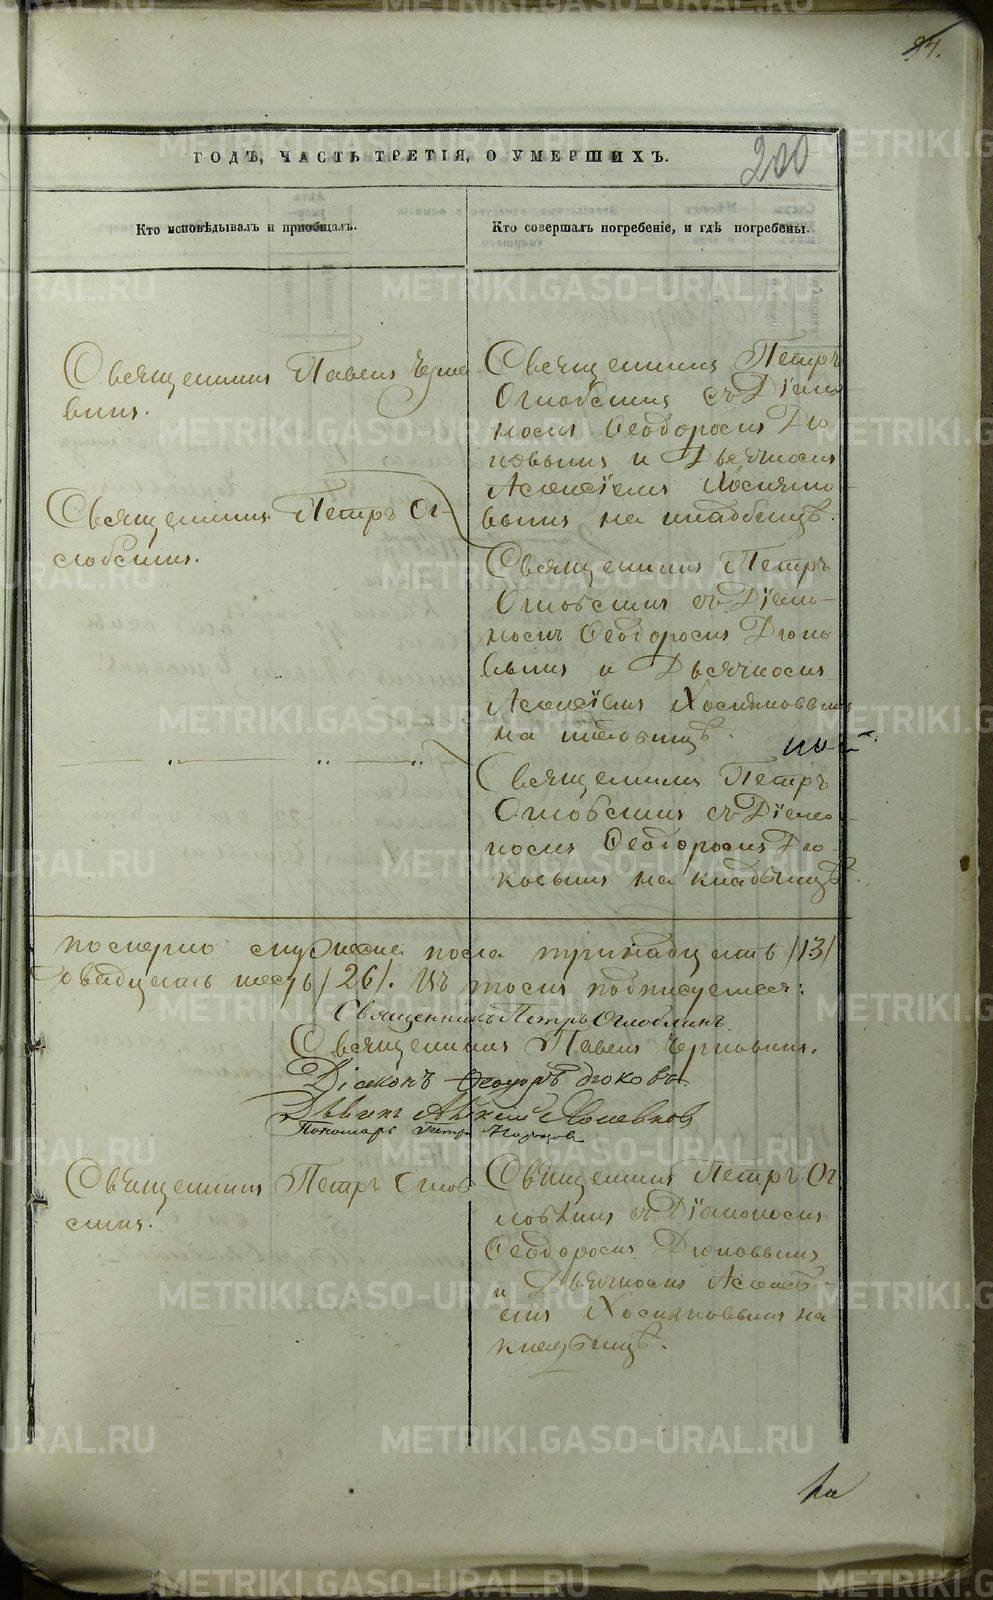 94.
200
ГОДЪ, ЧАСТЬ ТРЕТІЯ, О УМЕРШИХЪ.
Кто исповѣдывалъ и пріобщалъ.
Кто совершалъ погребеніе, и гдѣ погребены.
Священникъ Павелъ Черно
винъ.
Священникъ Петръ
Оглоблинъ съ Діако
номъ Ѳеодоромъ Дю
ковымъ и Дьячкомъ
Алексіемъ
вымъ на кладбищѣ.
Священникъ Петръ Ог-
лоблинъ.
Священникъ Петръ
Оглоблинъ съ Діако-
номъ Ѳеодоромъ Дюко
вымъ и Дьячкомъ
Алексіемъ
на кладбищѣ.
Священникъ Петръ
Оглоблинъ съ Діако
номъ Ѳеодоромъ Дю
ковымъ на кладбищѣ
пола тринадцать /13/
двадцать шесть /26/. Въ томъ подписуемся:
Священникъ Петръ Оглоблинъ.
Священникъ Павелъ Черновинъ.
Діаконъ Ѳеодоръ Дюковъ
Дьячекъ Алексій
Пономарь Петръ
Священникъ Петръ Оглоб
линъ.
Священникъ Петръ Ог
лоблинъ съ Діакономъ
Ѳеодоромъ Дюковымъ
и Дьячкомъ Алексѣ-
емъ на
кладбищѣ.
METRIKI.GASO-URAL.RU